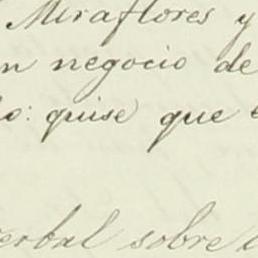 Miraflores y
n negocio de
o: quise que
erbal sobre